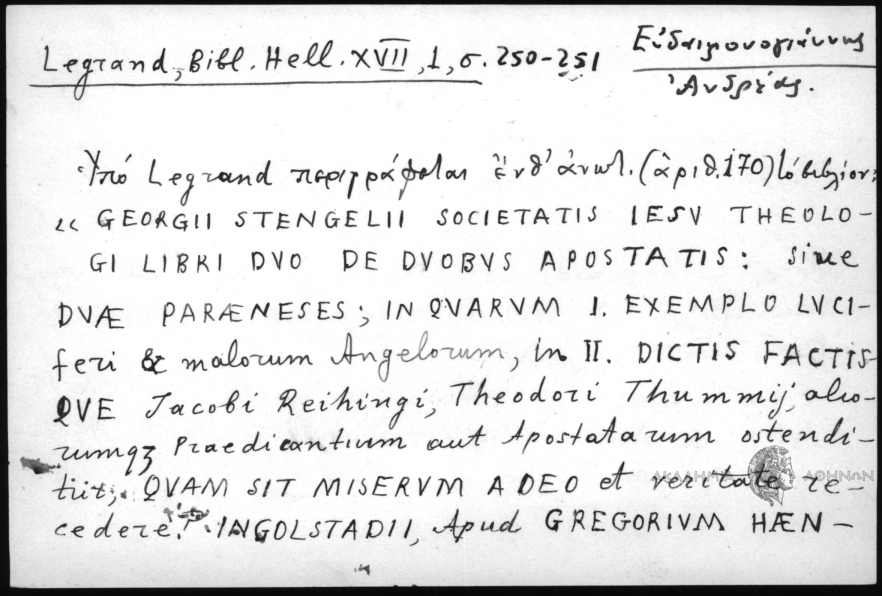 Legrand, Bibl. Hell. XVII, 1, σ. 250-251
Εὐδαιμονογιάννης
Ἀνδρέας.
Ὑπό Legrand περιγράφεται ἐνθ' ἀνωτ. (ἀριθ. 170) τό βιβλίον:
« GEORGII STENGELII SOCIETATIS IESV THEOLO-
GI LIBRI DVO DE DVOBVS APOSTATIS: siue
DVÆ PARÆNESES; IN QVARVM I. EXEMPLO LVCI-
feri & malorum Angelorum, in II. DICTIS FACTIS-
QVE Jacobi Reihingi, Theodori Thummij, alio-
rumqз Praedicantium aut Apostatarum ostendi-
tur, QVAM SIT MISERVM A DEO et veritate re-
cedere. INGOLSTADII, Apud GREGORIVM HÆN-
ΑΚΑΔΗΜΙΑ ΑΘΗΝΩΝ